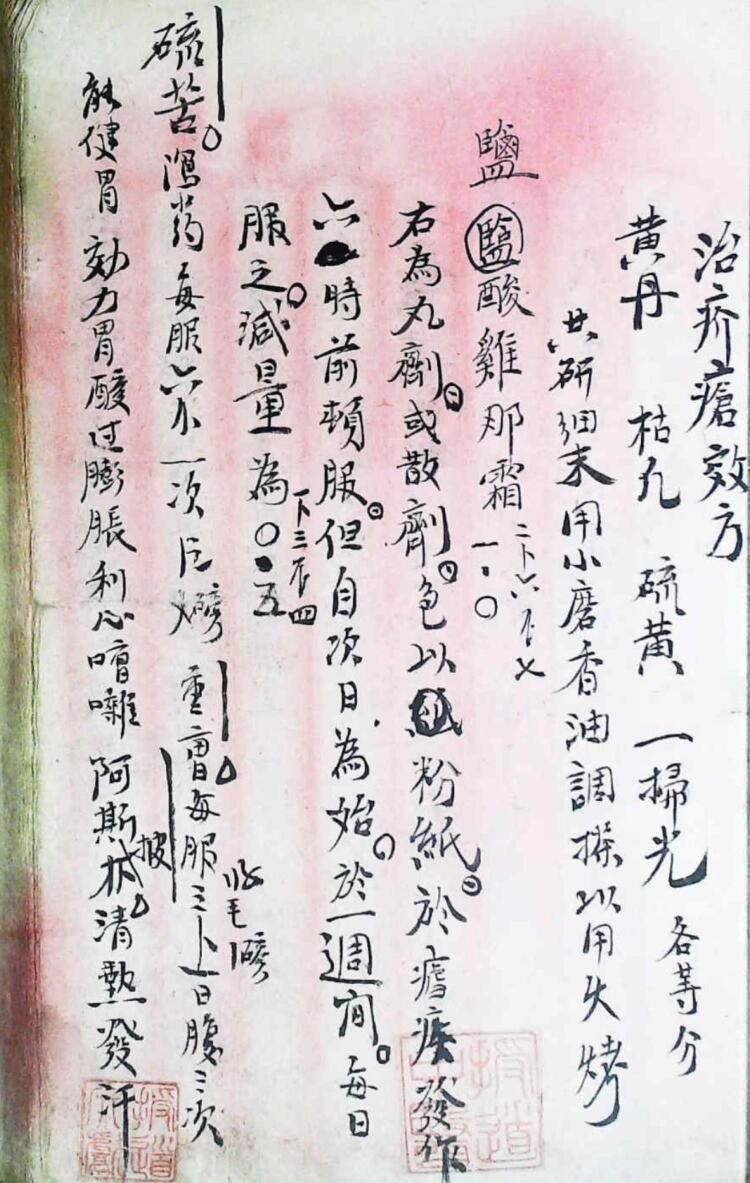 治疥瘡效方
黄丹 枯凡 硫黄 一掃光 各等分
共研细末用小磨香油調搽以用火烤
鹽
鹽酸雞那霜 一.〇
右為丸劑。或散劑。包以粉紙。於瘧疾發作
六時前頓服。但自次日為始。於一週间。每日
服之。減量為〇.五
硫苦。瀉药每服六 一次
重曹。每服三 一日服三次
能健胃 効力胃酸过膨脹利心嘈囃 阿斯披。清熱發汗